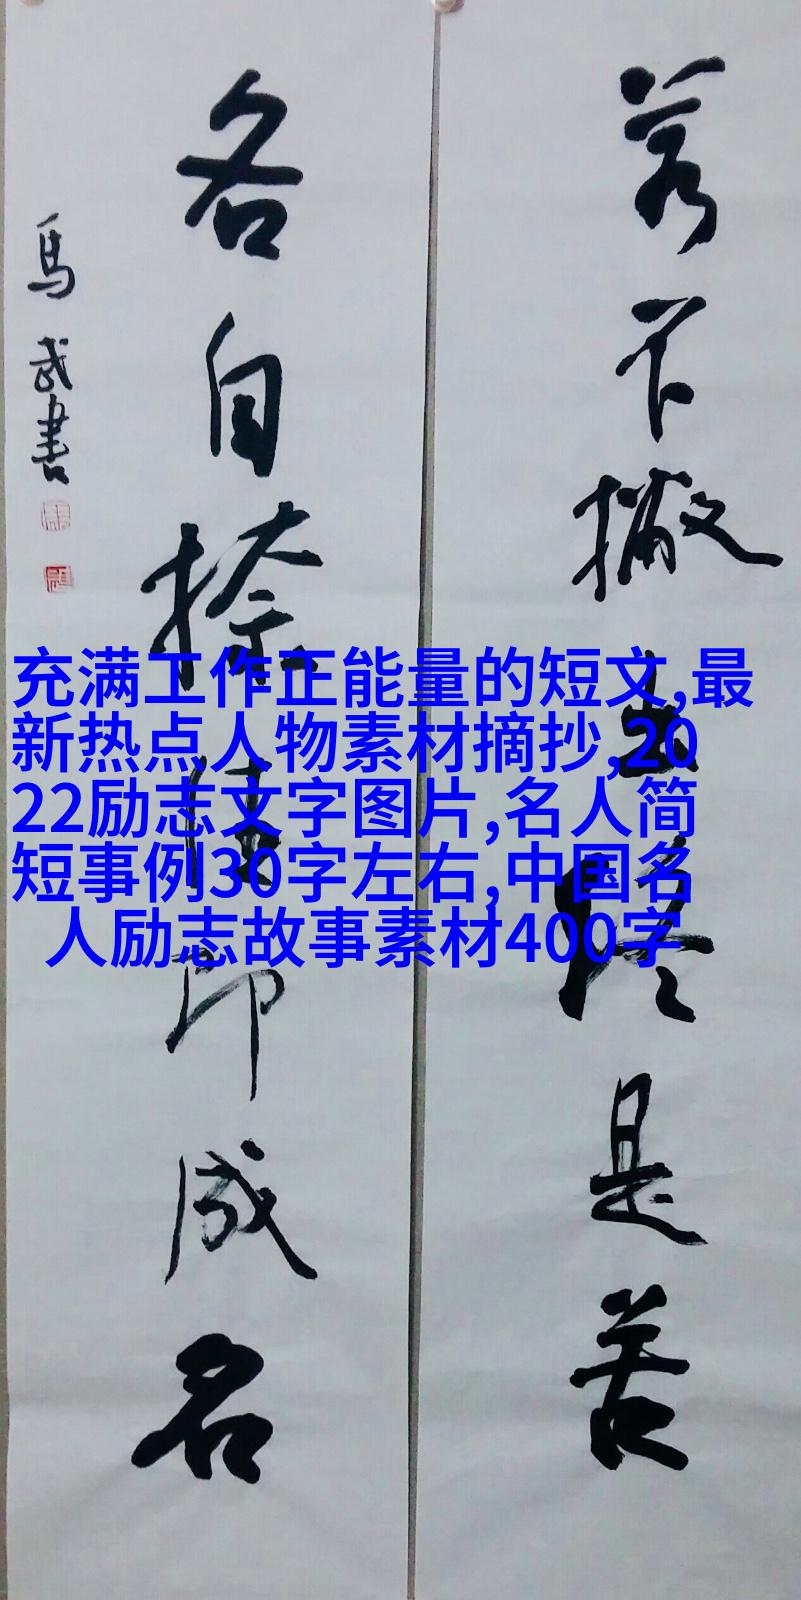 若不撇出终是苦
各自捺佳即成名
馬武書
充满工作正能量的短文,最
新热点人物素材摘抄,20
22励志文字图片,名人简
短事例30字左右,中国名
人励志故事素材400字